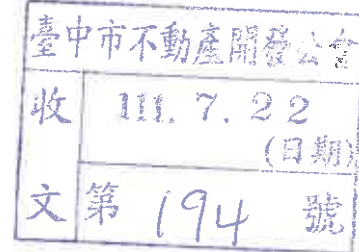 臺中市不動產開發公會
收
111. 7. 22
(日期)
文
第 194 號